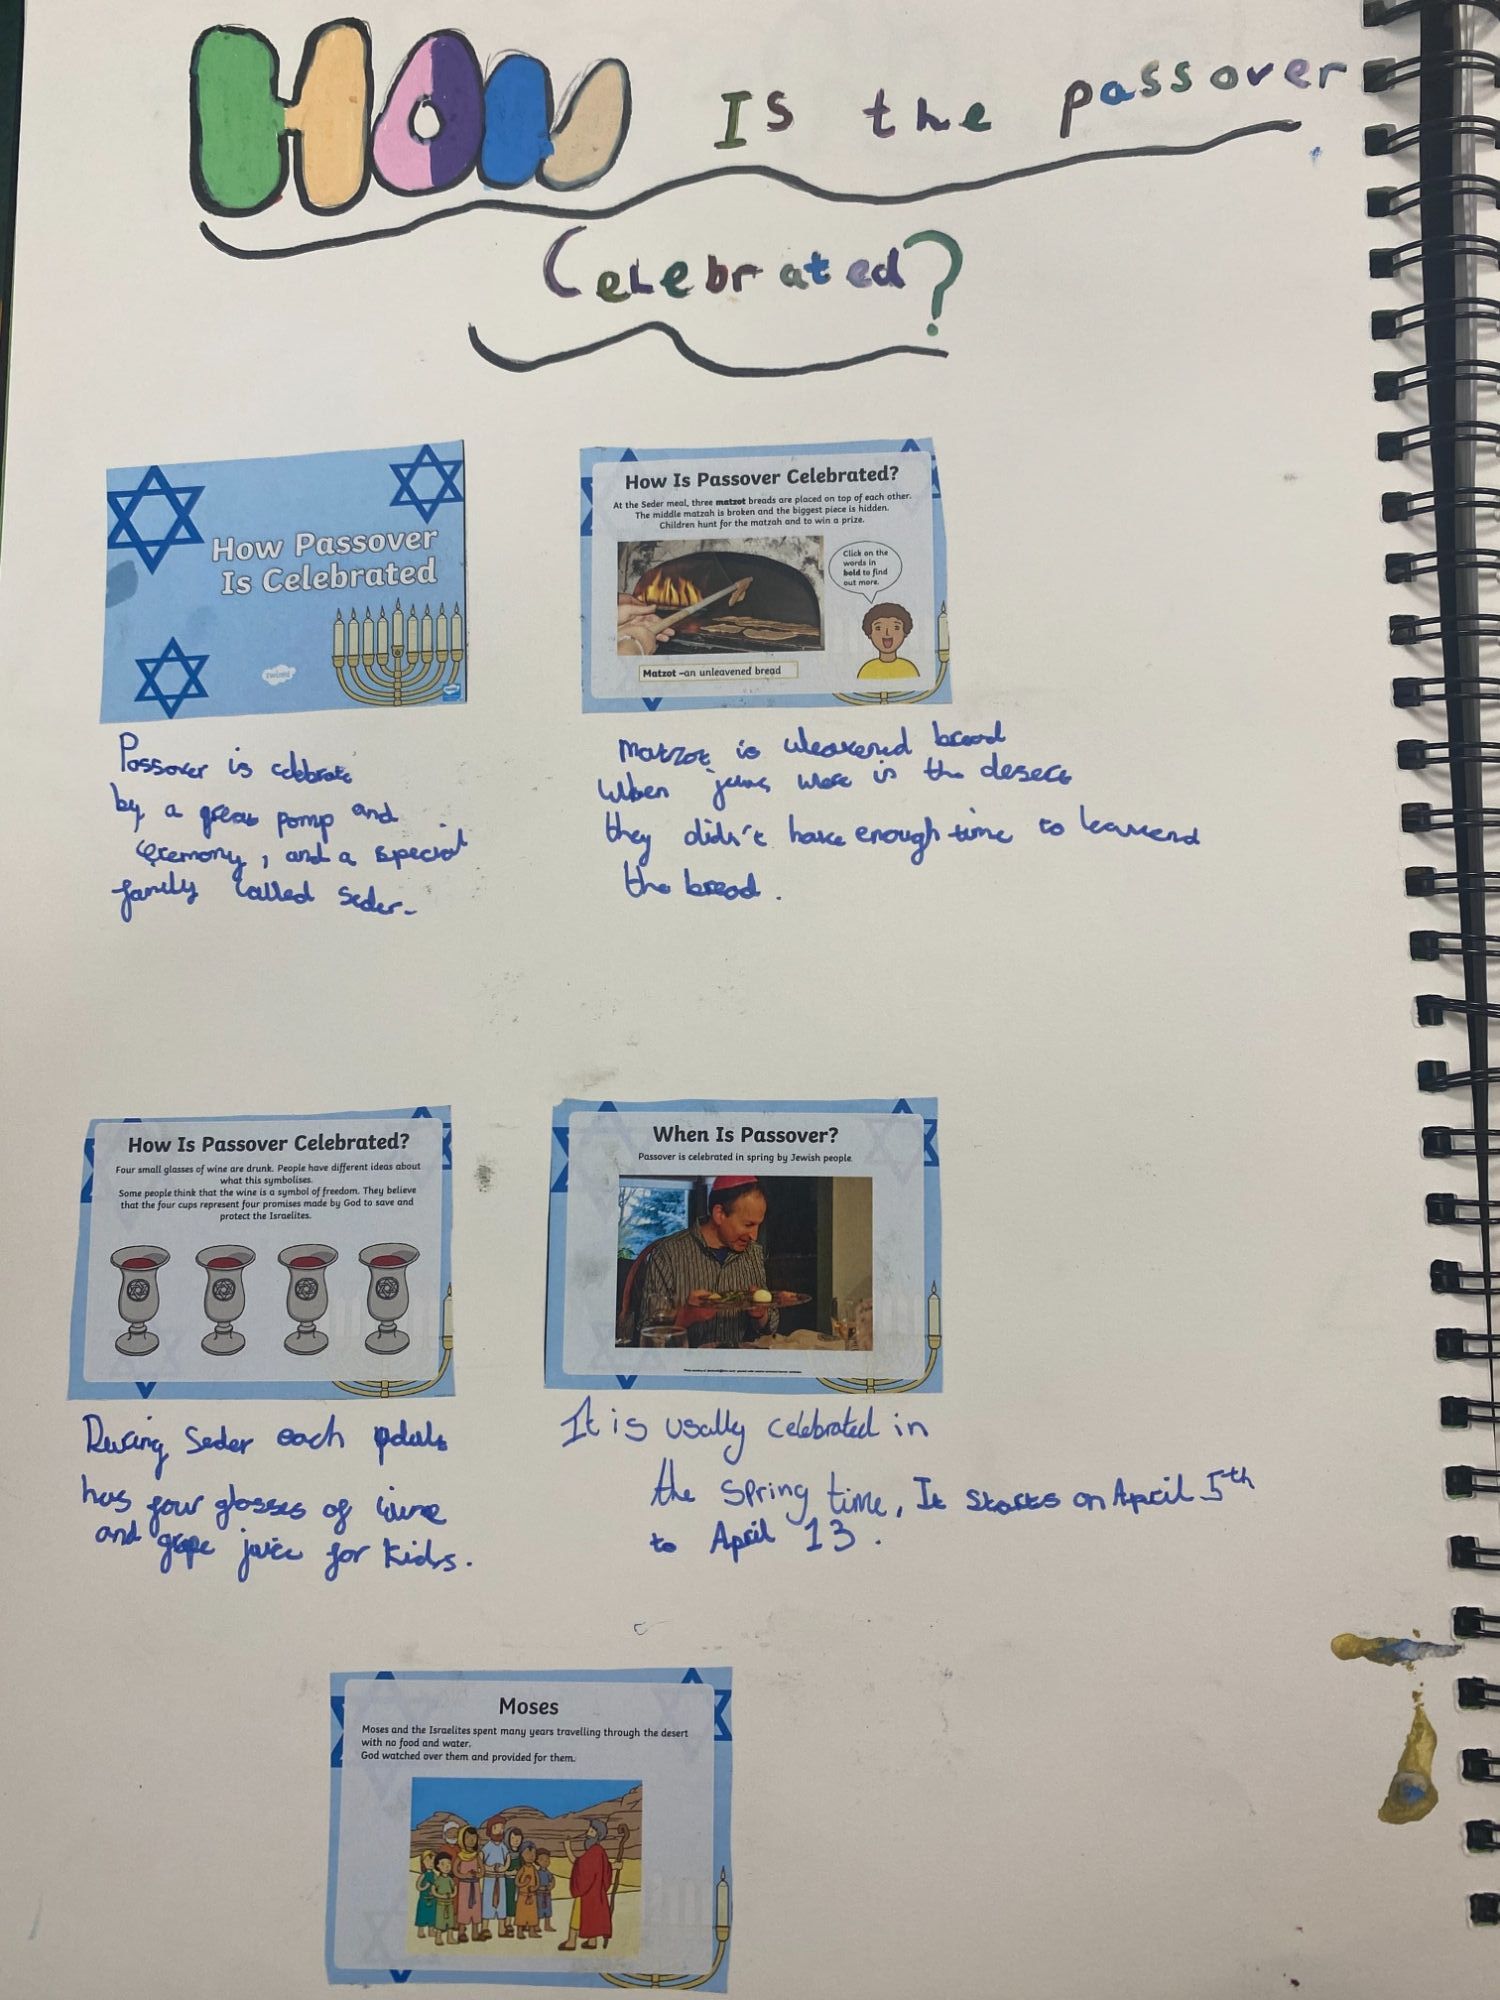 HOW Is the passover
Celebrated?
How Passover
Is Celebrated
twinkl
Passover is celebrate
by a great pomp and
ceremony, and a special
family called Seder.
How Is Passover Celebrated?
At the Seder meal, three matzot breads are placed on top of each other.
The middle matzah is broken and the biggest piece is hidden.
Children hunt for the matzah and to win a prize.
Click on the
words in
bold to find
out more.
Matzot –an unleavened bread
Matzot is uleavened bread
When jews were in the desert
they didn't have enough time to leavend
the bread.
How Is Passover Celebrated?
Four small glasses of wine are drunk. People have different ideas about
what this symbolises.
Some people think that the wine is a symbol of freedom. They believe
that the four cups represent four promises made by God to save and
protect the Israelites.
During Seder each
has four glasses of wine
and grape juice for kids.
When Is Passover?
Passover is celebrated in spring by Jewish people
It is usally celebrated in
the spring time, It starts on April 5th
to April 13.
Moses
Moses and the Israelites spent many years travelling through the desert
with no food and water.
God watched over them and provided for them.